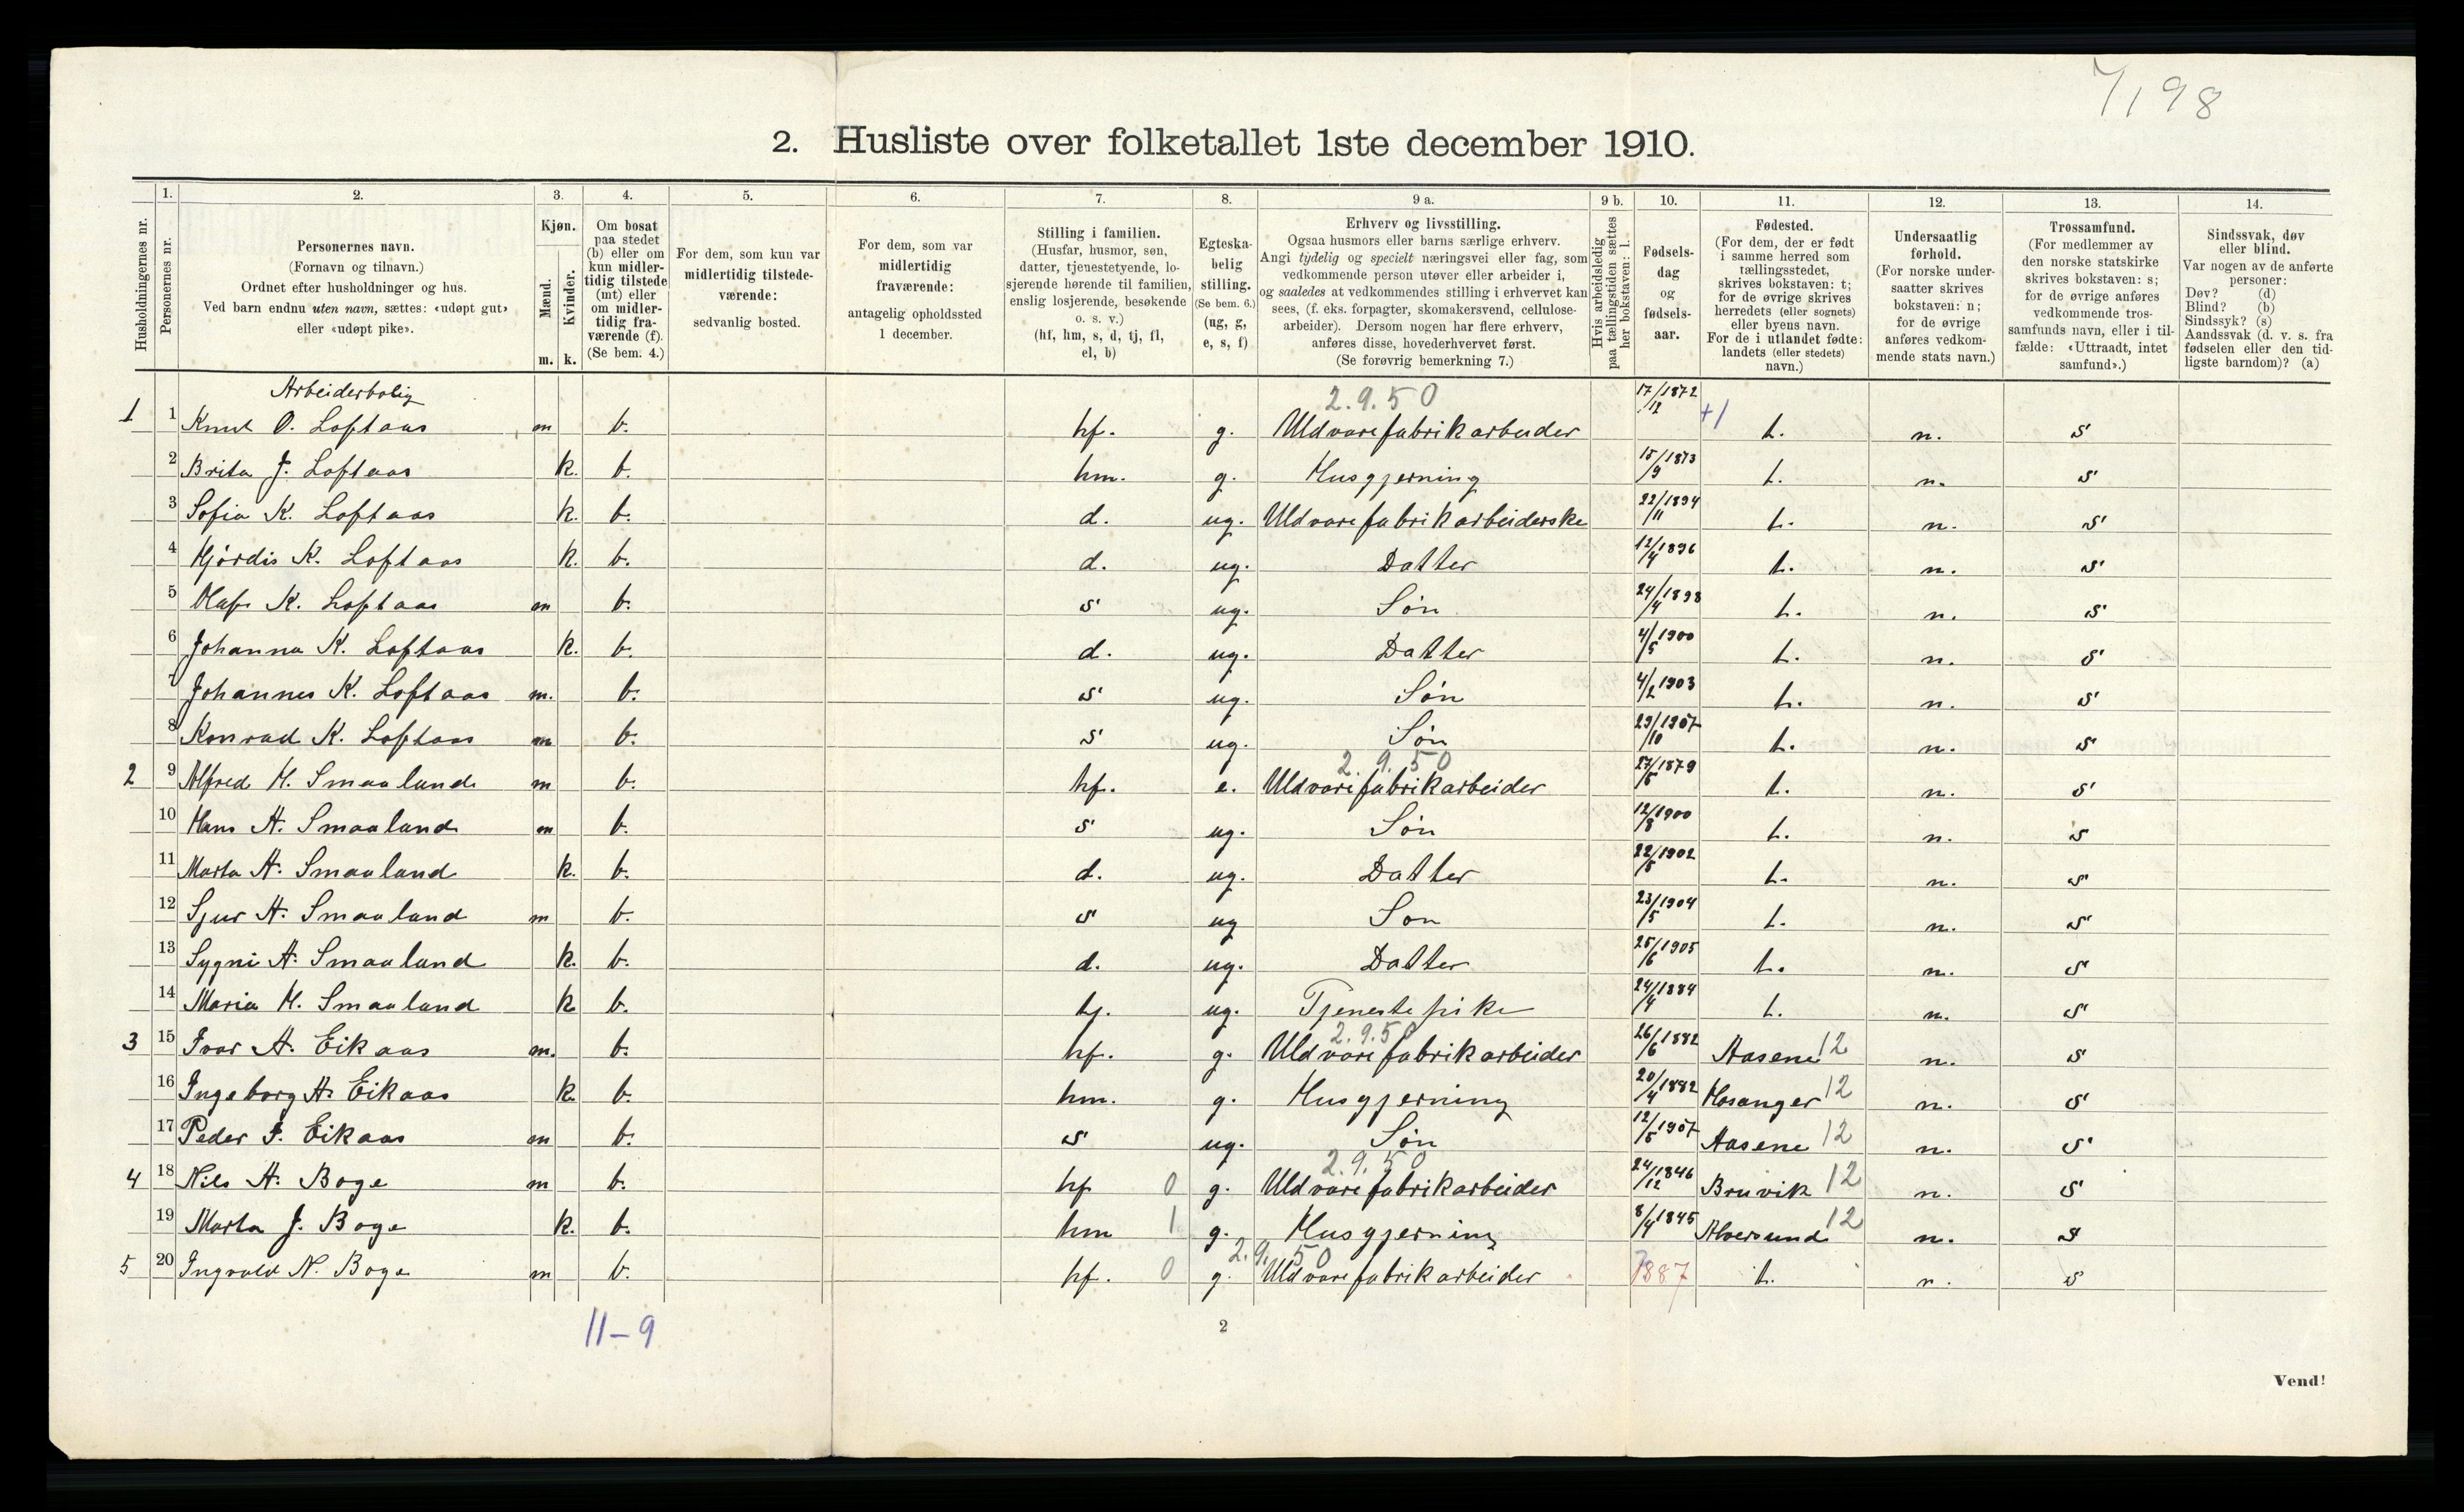 7198
2. Husliste over folketallet 1ste december 1910.
Husholdningernes nr.
1. Personernes nr.
2. Personernes navn.
(Fornavn og tilnavn.)
Ordnet efter husholdninger og hus.
Ved barn endnu uten navn, sættes: «udøpt gut»
eller «udøpt pike».
3. Kjøn.
Mænd. Kvinder.
m. k.
4. Om bosat
paa stedet
(b) eller om
kun midler-
tidig tilstede
(mt) eller
om midler-
tidig fra-
værende (f).
(Se bem. 4.)
5. For dem, som kun var
midlertidig tilstede-
værende:
sedvanlig bosted.
6. For dem, som var
midlertidig
fraværende:
antagelig opholdssted
1 december.
7. Stilling i familien.
(Husfar, husmor, søn,
datter, tjenestetyende, lo-
sjerende hørende til familien,
enslig losjerende, besøkende
o. s. v.)
(hf, hm, s, d, tj, fl,
el, b)
8. Egteska-
belig
stilling.
(Se bem. 6.)
(ug, g,
e, s, f)
9 a. Erhverv og livsstilling.
Ogsaa husmors eller barns særlige erhverv.
Angi tydelig og specielt næringsvei eller fag, som
vedkommende person utøver eller arbeider i,
og saaledes at vedkommendes stilling i erhvervet kan
sees, (f. eks. forpagter, skomakersvend, cellulose-
arbeider). Dersom nogen har flere erhverv,
anføres disse, hovederhvervet først.
(Se forøvrig bemerkning 7.)
9 b. Hvis arbeidsledig
paa tællingstiden sættes
her bokstaven: l.
10. Fødsels-
dag
og
fødsels-
aar.
11. Fødested.
(For dem, der er født
i samme herred som
tællingsstedet,
skrives bokstaven: t;
for de øvrige skrives
herredets (eller sognets)
eller byens navn.
For de i utlandet fødte:
landets (eller stedets)
navn.)
12. Undersaatlig
forhold.
(For norske under-
saatter skrives
bokstaven: n;
for de øvrige
anføres vedkom-
mende stats navn.)
13. Trossamfund.
(For medlemmer av
den norske statskirke
skrives bokstaven: s;
for de øvrige anføres
vedkommende tros-
samfunds navn, eller i til-
fælde: «Uttraadt, intet
samfund».)
14. Sindssvak, døv
eller blind.
Var nogen av de anførte
personer:
Døv? (d)
Blind? (b)
Sindssyk? (s)
Aandssvak (d. v. s. fra
fødselen eller den tid-
ligste barndom)? (a)
Arbeiderbolig 2.9.50
1 1 Knut O. Loftaas m b. hf. g. Uldvarefabrikarbeider 17/12 1872 +1 t. n. s
2 Brita J. Loftaas k. b. hm. g. Husgjerning 15/9 1873 t. n. s
3 Sofia K. Loftaas k. b. d. ug. Uldvarefabrikarbeiderske 22/11 1894 t. n. s
4 Hjørdis K. Loftaas k. b. d. ug. Datter 12/4 1896 t. n. s
5 Olaf K. Loftaas m b. s ug. Søn 24/4 1898 t. n. s
6 Johanna K. Loftaas k. b. d. ug. Datter 4/5 1900 t. n. s
7 Johannes K. Loftaas m. b. s ug. Søn 4/2 1903 t. n. s
8 Konrad K. Loftaas m b. s ug. Søn 29/10 1907 t. n. s
2.9.50
2 9 Alfred H. Smaaland m b. hf. e. Uldvarefabrikarbeider 27/5 1879 t. n. s
10 Hans A. Smaaland m b. s ug. Søn 12/8 1900 t. n. s
11 Marta A. Smaaland k. b. d. ug. Datter 22/5 1902 t. n. s
12 Sjur A. Smaaland m b. s ug Søn 23/5 1904 t. n. s
13 Sygni A. Smaaland k. b. d. ug. Datter 25/6 1905 t. n. s
14 Maria H. Smaaland k b. tj. ug. Tjenestepike 24/4 1884 t. n. s
2.9.50
3 15 Ivar A. Eikaas m. b. hf. g. Uldvarefabrikarbeider 26/6 1882 Aasene 12 n. s
16 Ingeborg A. Eikaas k. b. hm. g. Husgjerning 20/4 1882 Hosanger 12 n. s
17 Peder I. Eikaas m b. s ug. Søn 12/5 1907 Aasene 12 n. s
2.9.50
4 18 Nils A. Boge m b. hf 0 g. Uldvarefabrikarbeider 24/12 1846 Bruvik 12 n. s
19 Marta J. Boge k. b. hm 1 g. Husgjerning 8/4 1845 Alversund 12 n. s
2.9.50
5 20 Ingvald N. Boge m b. hf. 0 g. Uldvarefabrikarbeider 1887 t. n. s
11-9
2
Vend!